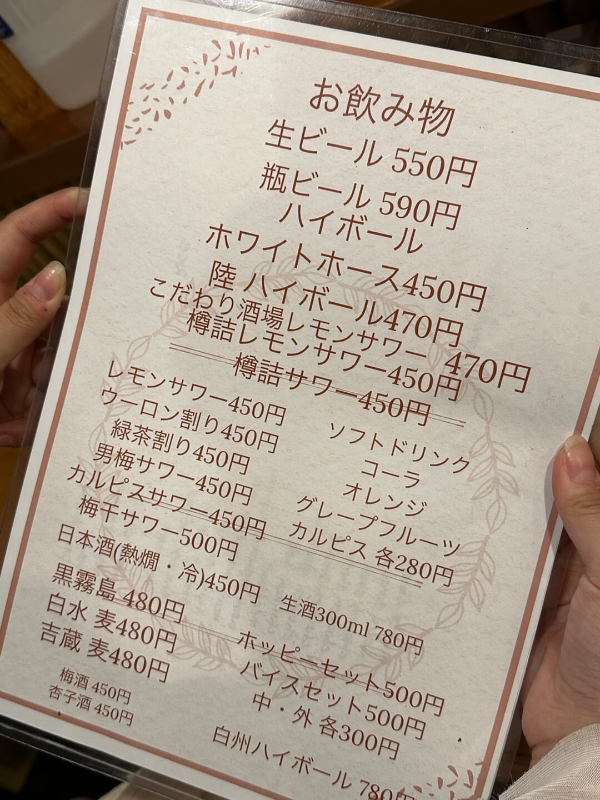 お飲み物
生ビール 550円
瓶ビール 590円
ハイボール
ホワイトホース450円
陸 ハイボール470円
こだわり酒場レモンサワー 470円
樽詰レモンサワー450円
樽詰サワー450円
レモンサワー450円
ウーロン割り450円
緑茶割り450円
男梅サワー450円
カルピスサワー450円
梅干サワー500円
ソフトドリンク
コーラ
オレンジ
グレープフルーツ
カルピス 各280円
日本酒(熱燗・冷)450円
生酒300ml 780円
黒霧島 480円
白水 麦480円
吉蔵 麦480円
梅酒 450円
杏子酒 450円
ホッピーセット500円
バイスセット500円
中・外 各300円
白州ハイボール 780円